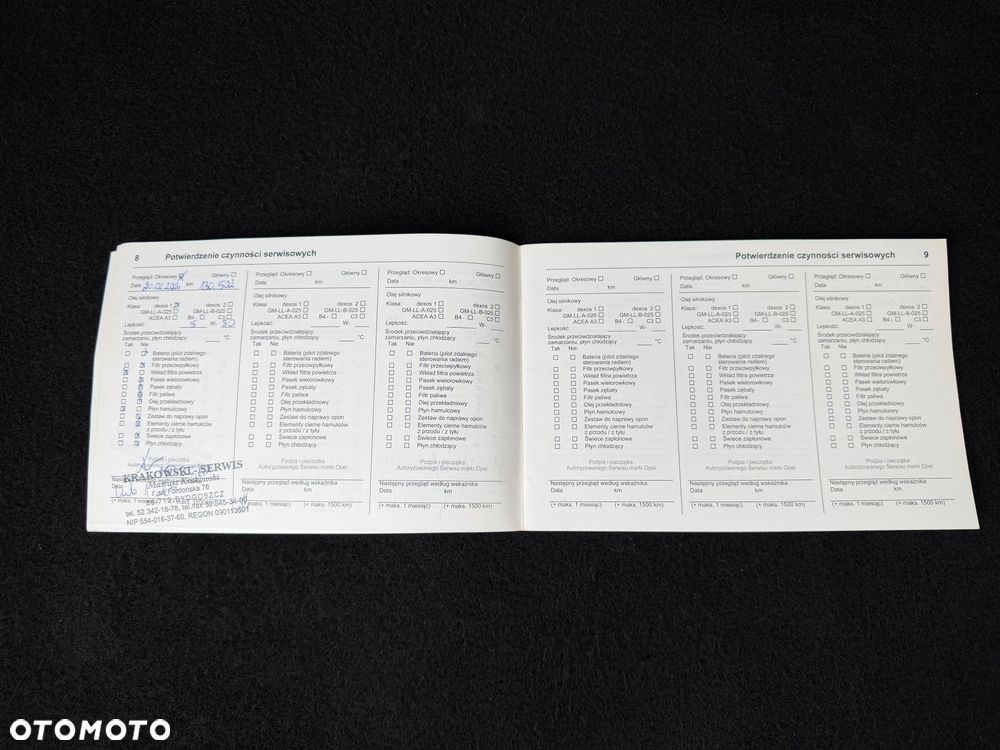 8 Potwierdzenie czynności serwisowych
Przegląd: Okresowy Główny
Data km 130.502
Olej silnikowy
Klasa: dexos 1 dexos 2
GM-LL-A-025 GM-LL-B-025
ACEA A3 B4- C3
Lepkość: 5 W- 30
Środek przeciwdziałający
zamarzaniu, płyn chłodzący °C
Tak Nie
Bateria (pilot zdalnego
sterowania radiem)
Filtr przeciwpyłkowy
Wkład filtra powietrza
Pasek wielorowkowy
Pasek zębaty
Filtr paliwa
Olej przekładniowy
Płyn hamulcowy
Zestaw do naprawy opon
Elementy cierne hamulców
z przodu / z tyłu
Świece zapłonowe
Płyn chłodzący
Podpis i pieczątka
KRAKOWSKI-SERWIS
Mariusz Krakowski
Fordońska 76
85-719 BYDGOSZCZ
tel. 52 342-18-78, tel./fax 52 345-34-90
NIP 554-016-37-60, REGON 090113501
Data
(+ maks. 1 miesiąc)
Przegląd: Okresowy Główny
Data km
Olej silnikowy
Klasa: dexos 1 dexos 2
GM-LL-A-025 GM-LL-B-025
ACEA A3 B4- C3
Lepkość: W-
Środek przeciwdziałający
zamarzaniu, płyn chłodzący °C
Tak Nie
Bateria (pilot zdalnego
sterowania radiem)
Filtr przeciwpyłkowy
Wkład filtra powietrza
Pasek wielorowkowy
Pasek zębaty
Filtr paliwa
Olej przekładniowy
Płyn hamulcowy
Zestaw do naprawy opon
Elementy cierne hamulców
z przodu / z tyłu
Świece zapłonowe
Płyn chłodzący
Podpis i pieczątka
Autoryzowanego Serwisu marki Opel
Następny przegląd według wskaźnika
Data km
(+ maks. 1 miesiąc) (+ maks. 1500 km)
Przegląd: Okresowy Główny
Data km
Olej silnikowy
Klasa: dexos 1 dexos 2
GM-LL-A-025 GM-LL-B-025
ACEA A3 B4- C3
Lepkość: W-
Środek przeciwdziałający
zamarzaniu, płyn chłodzący °C
Tak Nie
Bateria (pilot zdalnego
sterowania radiem)
Filtr przeciwpyłkowy
Wkład filtra powietrza
Pasek wielorowkowy
Pasek zębaty
Filtr paliwa
Olej przekładniowy
Płyn hamulcowy
Zestaw do naprawy opon
Elementy cierne hamulców
z przodu / z tyłu
Świece zapłonowe
Płyn chłodzący
Podpis i pieczątka
Autoryzowanego Serwisu marki Opel
Następny przegląd według wskaźnika
Data km
(+ maks. 1 miesiąc) (+ maks. 1500 km)
Potwierdzenie czynności serwisowych 9
Przegląd: Okresowy Główny
Data km
Olej silnikowy
Klasa: dexos 1 dexos 2
GM-LL-A-025 GM-LL-B-025
ACEA A3 B4- C3
Lepkość: W-
Środek przeciwdziałający
zamarzaniu, płyn chłodzący °C
Tak Nie
Bateria (pilot zdalnego
sterowania radiem)
Filtr przeciwpyłkowy
Wkład filtra powietrza
Pasek wielorowkowy
Pasek zębaty
Filtr paliwa
Olej przekładniowy
Płyn hamulcowy
Zestaw do naprawy opon
Elementy cierne hamulców
z przodu / z tyłu
Świece zapłonowe
Płyn chłodzący
Podpis i pieczątka
Autoryzowanego Serwisu marki Opel
Następny przegląd według wskaźnika
Data km
(+ maks. 1 miesiąc) (+ maks. 1500 km)
Przegląd: Okresowy Główny
Data km
Olej silnikowy
Klasa: dexos 1 dexos 2
GM-LL-A-025 GM-LL-B-025
ACEA A3 B4- C3
Lepkość: W-
Środek przeciwdziałający
zamarzaniu, płyn chłodzący °C
Tak Nie
Bateria (pilot zdalnego
sterowania radiem)
Filtr przeciwpyłkowy
Wkład filtra powietrza
Pasek wielorowkowy
Pasek zębaty
Filtr paliwa
Olej przekładniowy
Płyn hamulcowy
Zestaw do naprawy opon
Elementy cierne hamulców
z przodu / z tyłu
Świece zapłonowe
Płyn chłodzący
Podpis i pieczątka
Autoryzowanego Serwisu marki Opel
Następny przegląd według wskaźnika
Data km
(+ maks. 1 miesiąc) (+ maks. 1500 km)
Przegląd: Okresowy Główny
Data km
Olej silnikowy
Klasa: dexos 1 dexos 2
GM-LL-A-025 GM-LL-B-025
ACEA A3 B4- C3
Lepkość: W-
Środek przeciwdziałający
zamarzaniu, płyn chłodzący °C
Tak Nie
Bateria (pilot zdalnego
sterowania radiem)
Filtr przeciwpyłkowy
Wkład filtra powietrza
Pasek wielorowkowy
Pasek zębaty
Filtr paliwa
Olej przekładniowy
Płyn hamulcowy
Zestaw do naprawy opon
Elementy cierne hamulców
z przodu / z tyłu
Świece zapłonowe
Płyn chłodzący
Podpis i pieczątka
Autoryzowanego Serwisu marki Opel
Następny przegląd według wskaźnika
Data km
(+ maks. 1 miesiąc) (+ maks. 1500 km)
OTOMOTO